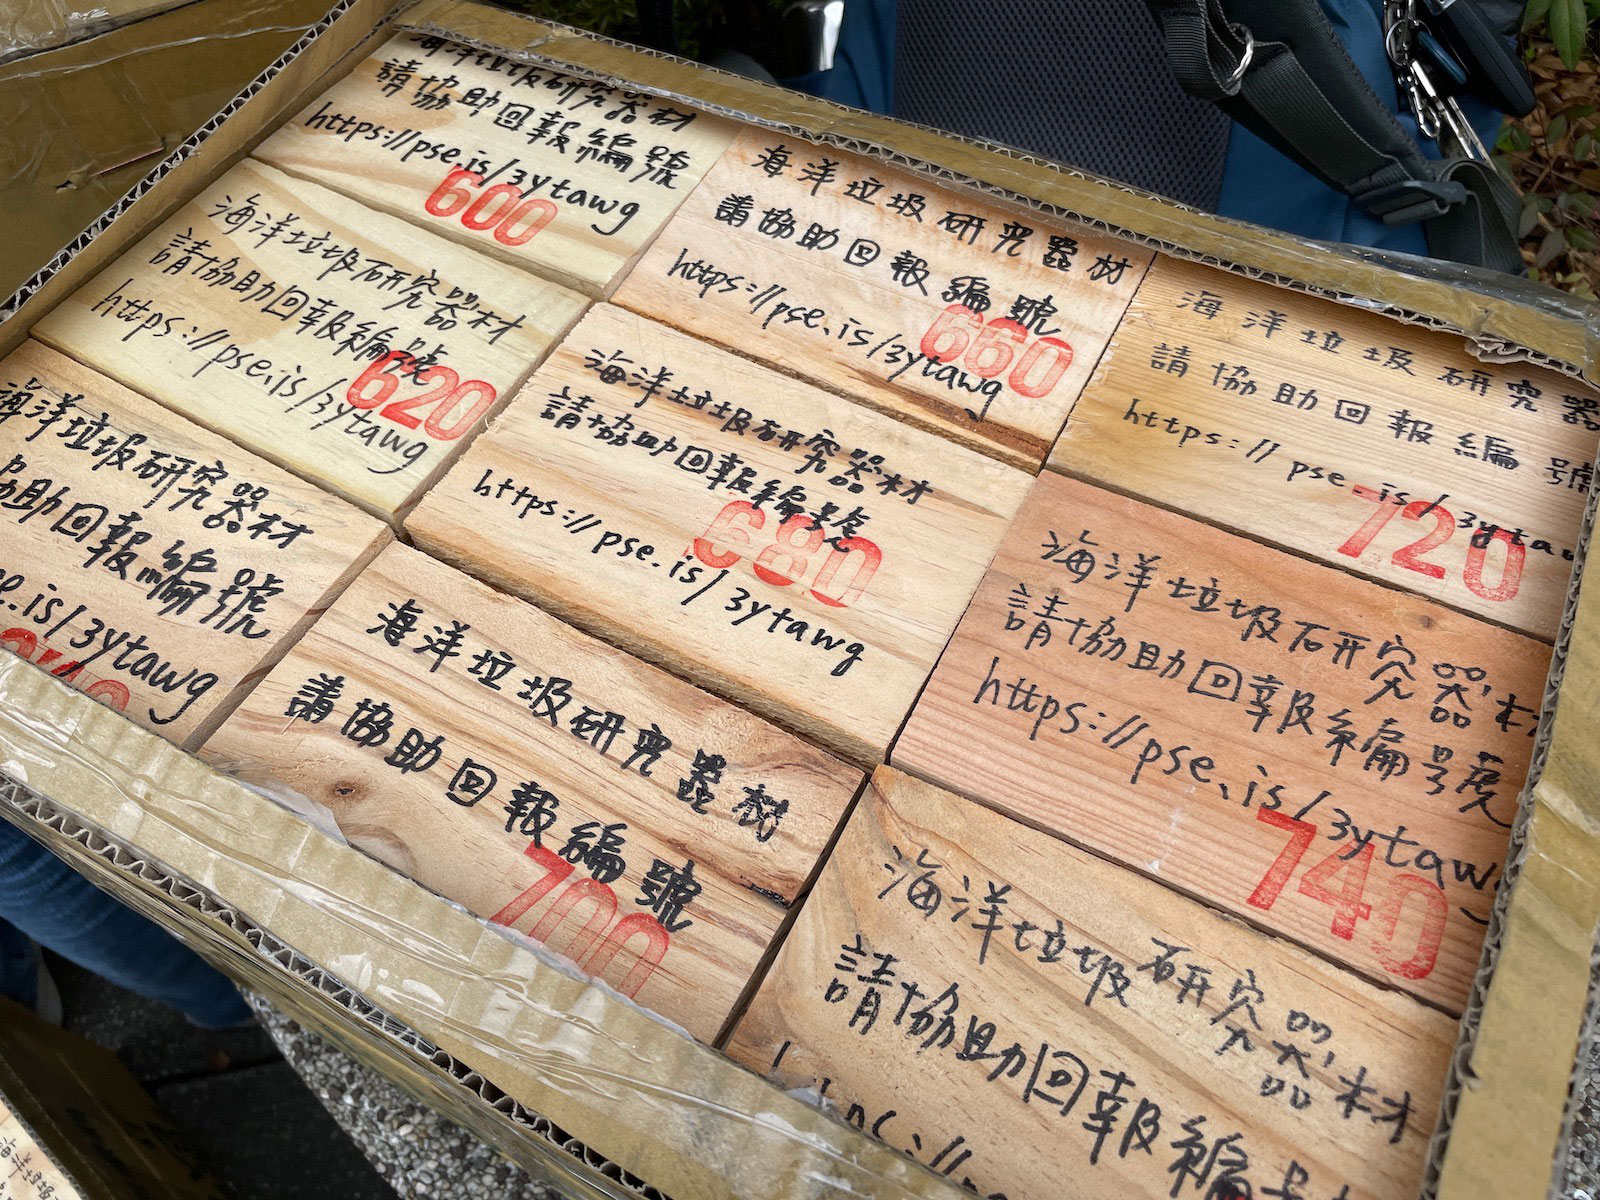 海洋垃圾研究器材
請協助回報編號
https://pse.is/3ytawg
600
海洋垃圾研究器材
請協助回報編號
https://pse.is/3ytawg
660
海洋垃圾研究器
請協助回報編號
https://pse.is/3ytaw
720
海洋垃圾研究器材
請協助回報編號
https://pse.is/3ytawg
620
海洋垃圾研究器材
請協助回報編號
https://pse.is/3ytawg
680
海洋垃圾研究器材
請協助回報編號
https://pse.is/3ytawg
740
海洋垃圾研究器材
協助回報編號
e.is/3ytawg
640
海洋垃圾研究器材
請協助回報編號
700
海洋垃圾研究器材
請協助回報編號